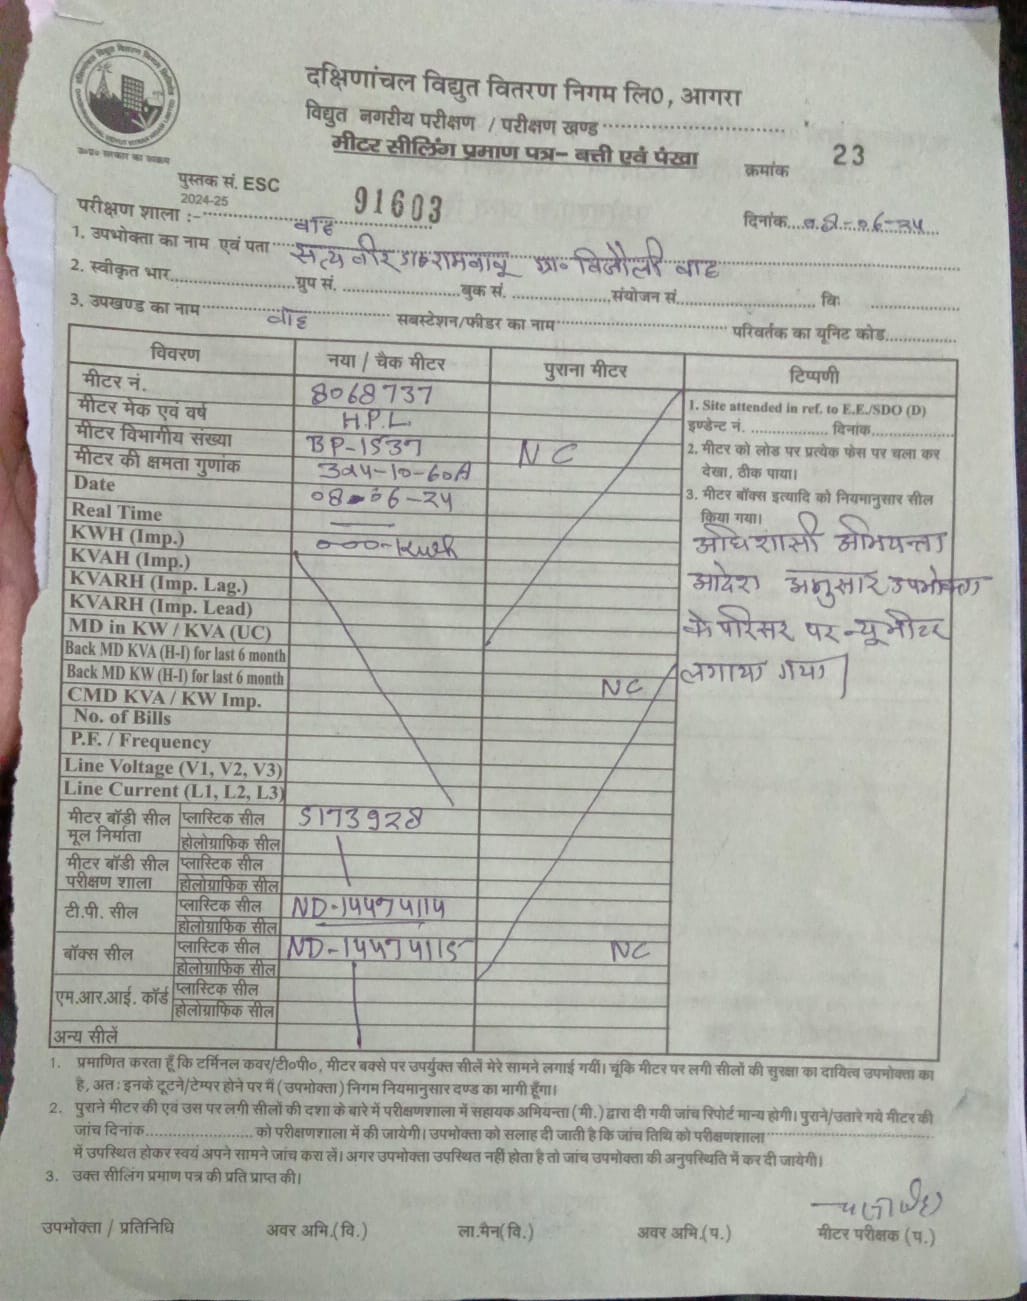 उ०प्र० सरकार का उपक्रम
दक्षिणांचल विद्युत वितरण निगम लि0, आगरा
विद्युत नगरीय परीक्षण / परीक्षण खण्ड
मीटर सीलिंग प्रमाण पत्र– बत्ती एवं पंखा
क्रमांक 23
पुस्तक सं. ESC 91603
2024-25
परीक्षण शाला :- बाह
दिनांक 08-06-24
1. उपभोक्ता का नाम एवं पता सत्यवीर रामबाबू ग्रा० विजौली बाह
2. स्वीकृत भार ग्रुप सं. बुक सं. संयोजन सं. वि
3. उपखण्ड का नाम बाह सबस्टेशन/फीडर का नाम परिवर्तक का यूनिट कोड
विवरण नया / चैक मीटर पुराना मीटर टिप्पणी
मीटर नं. 8068737
मीटर मेक एवं वर्ष H.P.L
मीटर विभागीय संख्या BP-1537 NC
मीटर की क्षमता गुणांक 3न4-10-60A
Date 08-06-24
Real Time
KWH (Imp.) 000-kwh
KVAH (Imp.)
KVARH (Imp. Lag.)
KVARH (Imp. Lead)
MD in KW / KVA (UC)
Back MD KVA (H-I) for last 6 month
Back MD KW (H-I) for last 6 month NC
CMD KVA / KW Imp.
No. of Bills
P.F. / Frequency
Line Voltage (V1, V2, V3)
Line Current (L1, L2, L3)
1. Site attended in ref. to E.E./SDO (D)
इण्डेन्ट नं. दिनांक
2. मीटर को लोड पर प्रत्येक फेस पर चला कर
देखा, ठीक पाया।
3. मीटर बॉक्स इत्यादि को नियमानुसार सील
किया गया।
अधिशासी अभियन्ता
आदेश अनुसार उपभोक्ता
के परिसर पर न्यू मीटर
लगाया गया
मीटर बॉडी सील प्लास्टिक सील 5173928
मूल निर्माता होलोग्राफिक सील
मीटर बॉडी सील प्लास्टिक सील
परीक्षण शाला होलोग्राफिक सील
टी.पी. सील प्लास्टिक सील ND-14474114
होलोग्राफिक सील
बॉक्स सील प्लास्टिक सील ND-14474115 NC
होलोग्राफिक सील
एम.आर.आई. कॉर्ड प्लास्टिक सील
होलोग्राफिक सील
अन्य सीलें
1. प्रमाणित करता हूँ कि टर्मिनल कवर/टी०पी०, मीटर बक्से पर उपर्युक्त सीलें मेरे सामने लगाई गयीं। चूंकि मीटर पर लगी सीलों की सुरक्षा का दायित्व उपभोक्ता का
है, अतः इनके टूटने/टेम्पर होने पर मैं (उपभोक्ता) निगम नियमानुसार दण्ड का भागी हूँगा।
2. पुराने मीटर की एवं उस पर लगी सीलों की दशा के बारे में परीक्षणशाला में सहायक अभियन्ता (मी.) द्वारा दी गयी जांच रिपोर्ट मान्य होगी। पुराने/उतारे गये मीटर की
जांच दिनांक को परीक्षणशाला में की जायेगी। उपभोक्ता को सलाह दी जाती है कि जांच तिथि को परीक्षणशाला
में उपस्थित होकर स्वयं अपने सामने जांच करा लें। अगर उपभोक्ता उपस्थित नहीं होता है तो जांच उपभोक्ता की अनुपस्थिति में कर दी जायेगी।
3. उक्त सीलिंग प्रमाण पत्र की प्रति प्राप्त की।
उपभोक्ता / प्रतिनिधि अवर अभि.(वि.) ला.मैन(वि.) अवर अभि.(प.) मीटर परीक्षक (प.)